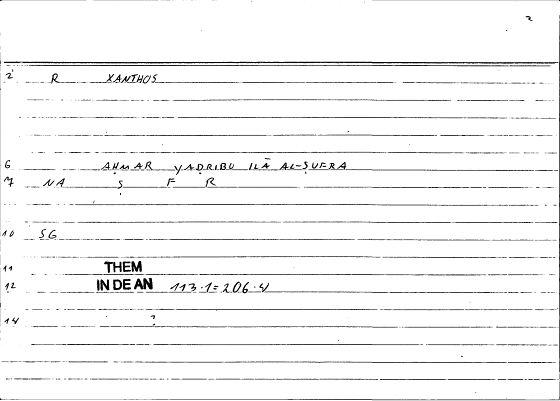 2
2 R XANTHOS
6 AḤMAR YAḌRIBU ILĀ AL-ṢUFRA
7 NA Ṣ F R
10 SG
11 THEM
12 IN DE AN 113·1=206·4
14 ?